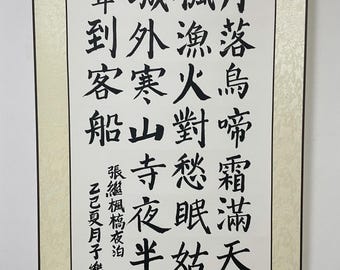 月落烏啼霜滿天
楓漁火對愁眠姑
城外寒山寺夜半
聲到客船
張繼楓橋夜泊
乙巳夏月子